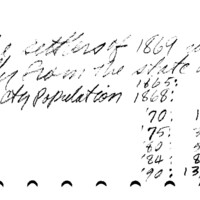 settlers of 1869
from the state
1865:
City Population 1868:
'70: 1
'75:
'80:
'84: 8
'90: 13,